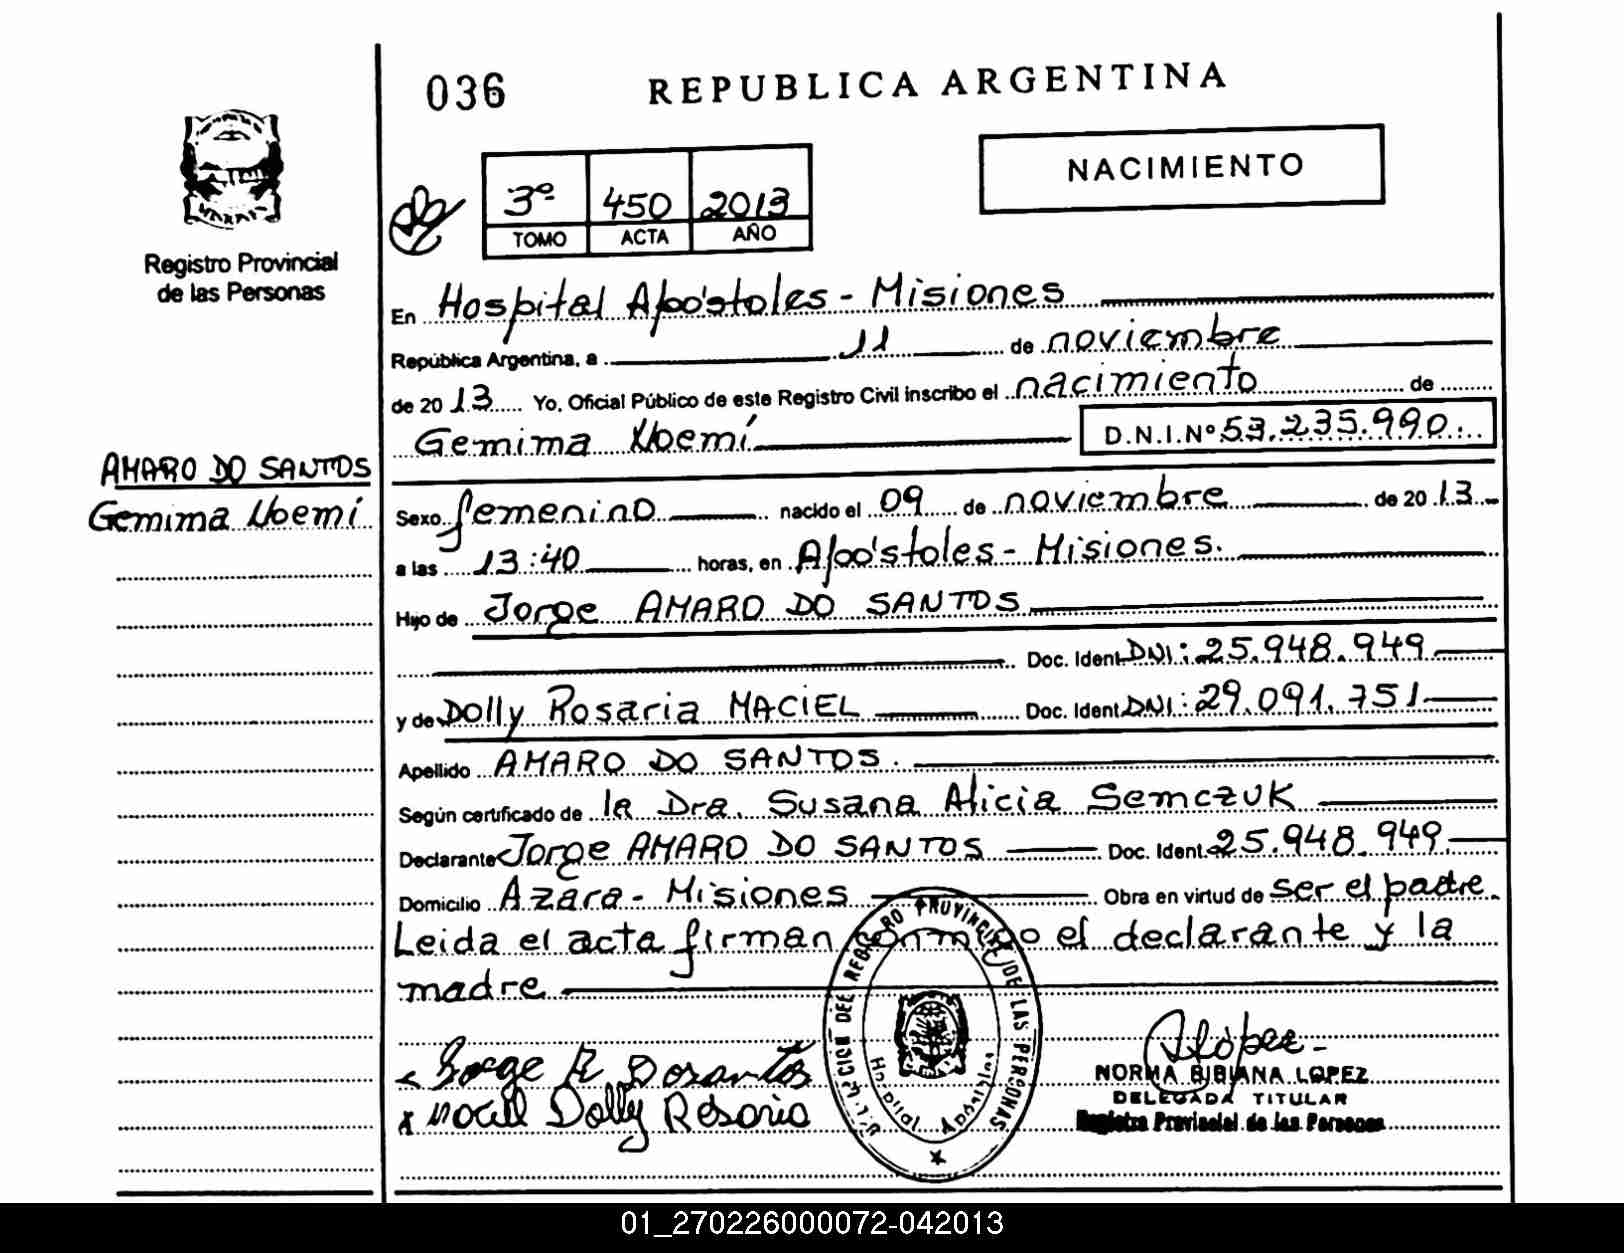 036
REPUBLICA ARGENTINA
NACIMIENTO
3º 450 2013
TOMO ACTA AÑO
Registro Provincial
de las Personas
En Hospital Apóstoles - Misiones
República Argentina, a 11 de noviembre
de 2013 Yo, Oficial Público de este Registro Civil inscribo el nacimiento de
Gemima Noemí D.N.I.Nº 53.235.990
AMARO DO SANTOS
Gemima Noemí
Sexo femenino nacido el 09 de noviembre de 2013
a las 13:40 horas, en Apóstoles - Misiones.
Hijo de Jorge AMARO DO SANTOS
Doc. Ident. DNI: 25.948.949
y de Dolly Rosaria MACIEL Doc. Ident. DNI: 29.091.751
Apellido AMARO DO SANTOS.
Según certificado de la Dra. Susana Alicia Semczuk
Declarante Jorge AMARO DO SANTOS Doc. Ident. 25.948.949
Domicilio Azara - Misiones Obra en virtud de ser el padre.
Leida el acta firman conmigo el declarante y la
madre
Jorge A Dosantos
x Macièl Dolly Rosaria
DEL REGISTRO PROVINCIAL DE LAS PERSONAS
Hospital Apóstoles
López
NORMA BIBIANA LOPEZ
DELEGADA TITULAR
Registro Provincial de las Personas
01_270226000072-042013